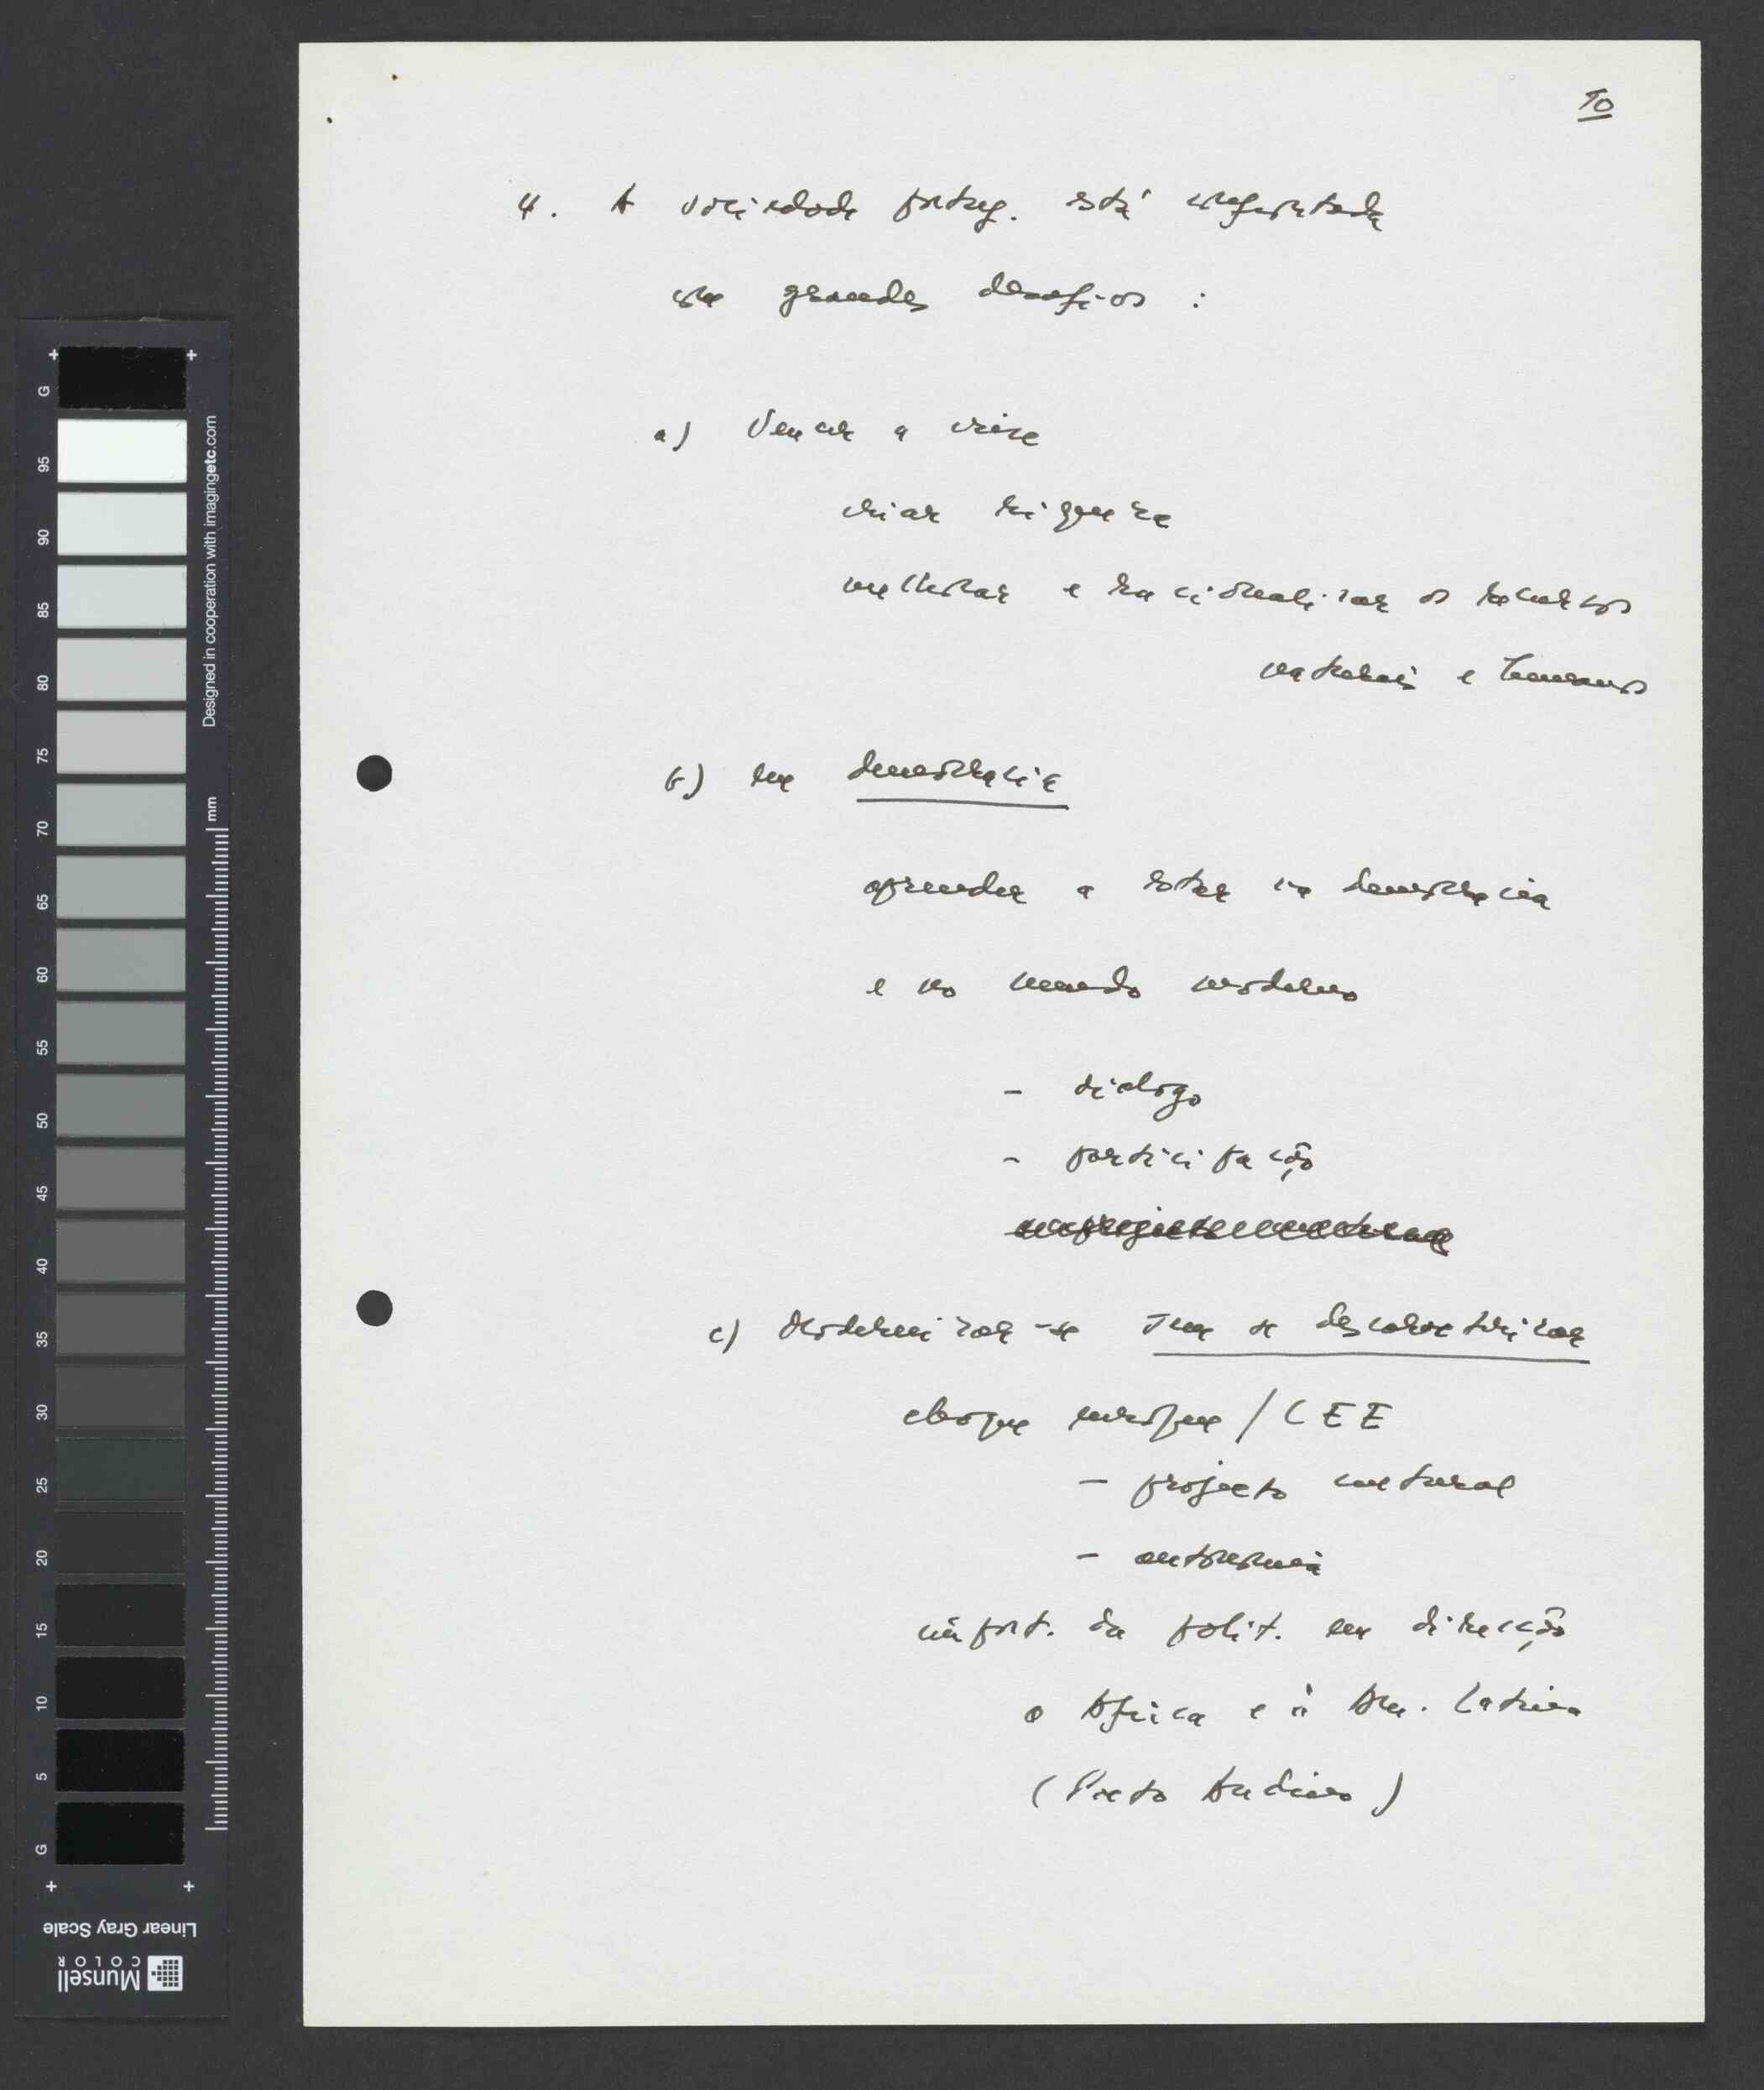 10
4. A sociedade portug. está confrontada
com grandes desafios :
a) Vencer a crise
criar riqueza
melhorar e racionalizar os recursos
materiais e humanos
b) em democracia
aprender a estar na democracia
e no mundo moderno
- diálogo
- participação
c) Modernizar-se sem se descaracterizar
choque europeu / CEE
- projecto cultural
- autonomia
import. da polit. em direcção
a Africa e à Am. Latina
(Pacto Andino)
G
95
90
85
80
75
70
65
60
55
50
45
40
35
30
25
20
15
10
5
G
Designed in cooperation with imagingetc.com
mm
Linear Gray Scale
Munsell
COLOR